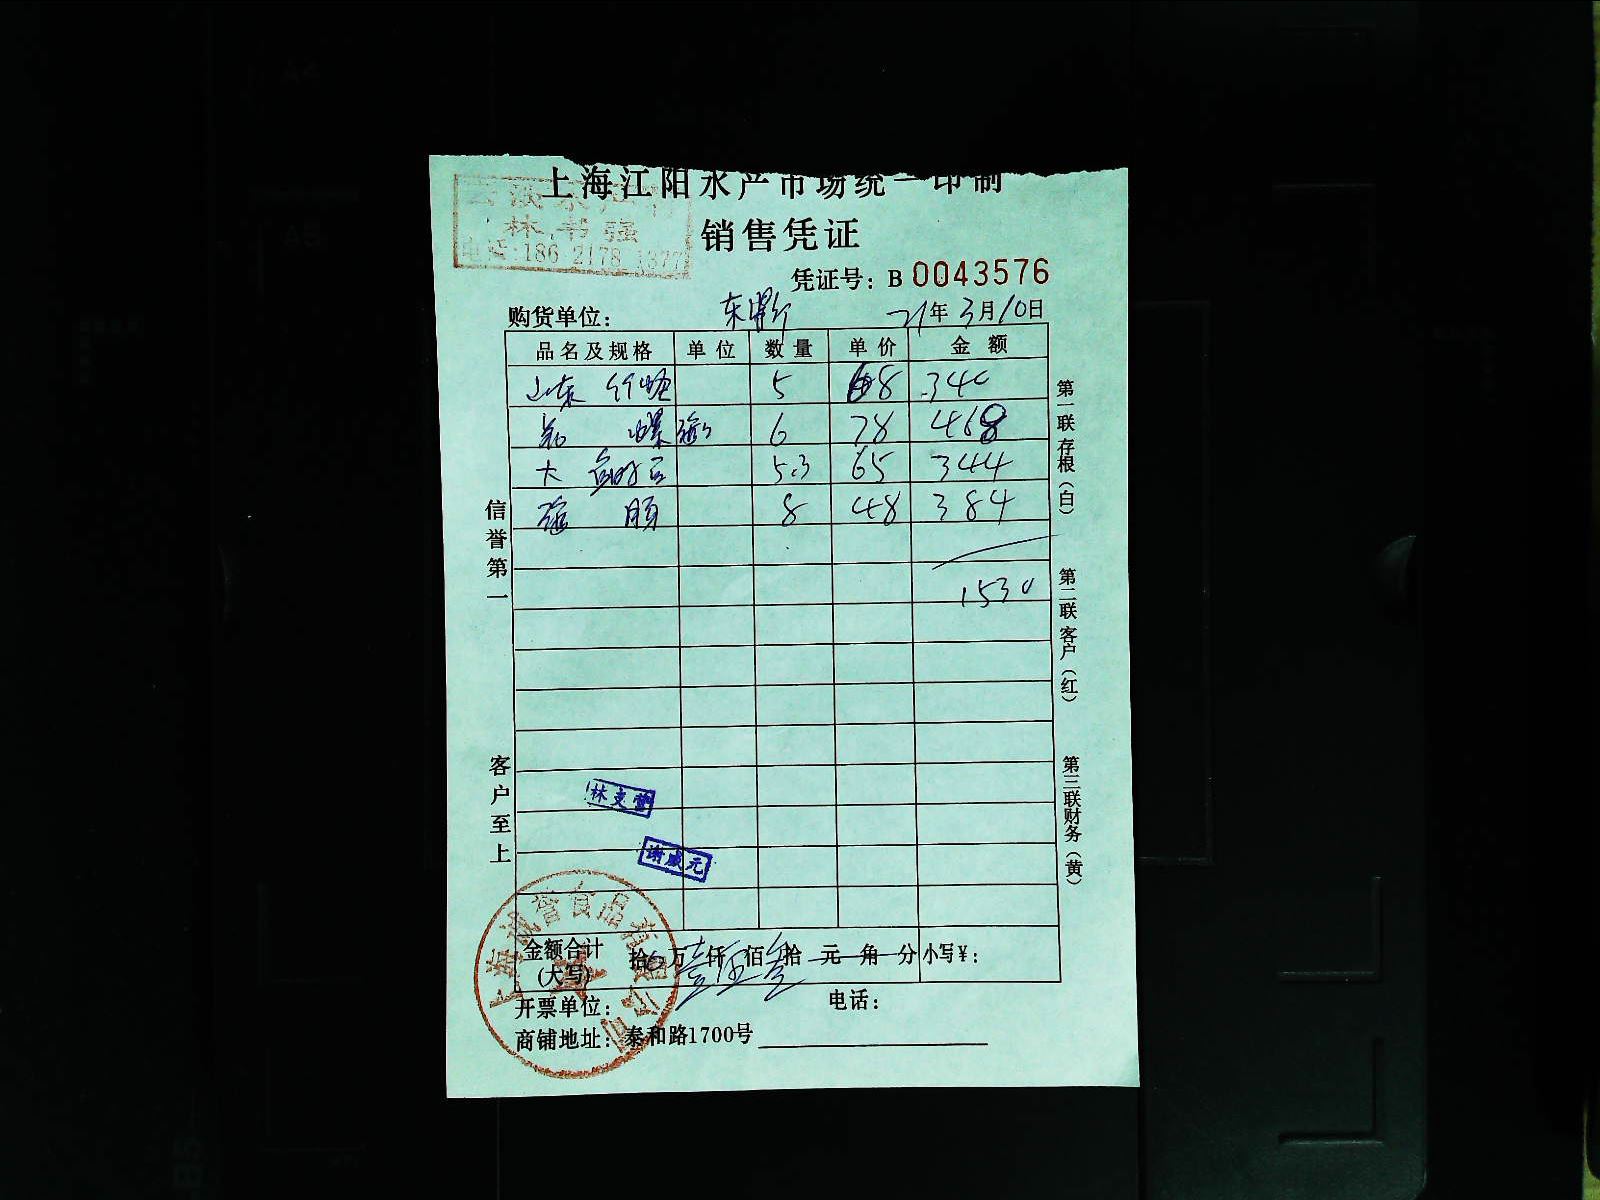 上海江阳水产市场统一印制
林书强
电话:186 2178 1377
销售凭证
凭证号: B 0043576
购货单位: 21年3月10日
品名及规格 单位 数量 单价 金额
山东 5 68 340
6 78 468
大 5.3 65 344
8 48 384
1530
信誉第一
客户至上
第一联存根(白)
第二联客户(红)
第三联财务(黄)
林支营
谢成元
上海诚誉食品有限公司
金额合计(大写) 拾万壹仟伍佰叁拾元角分 小写¥:
开票单位: 电话:
商铺地址: 泰和路1700号